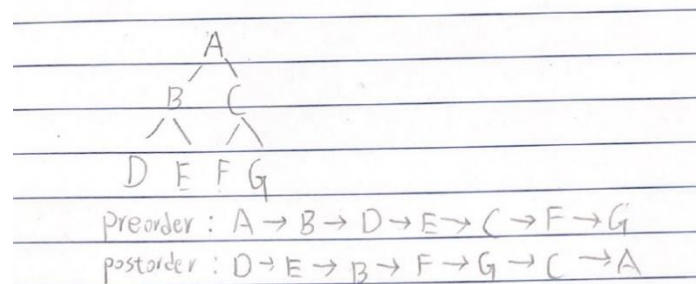 A
B C
D E F G
preorder : A → B → D → E → C → F → G
postorder : D → E → B → F → G → C → A